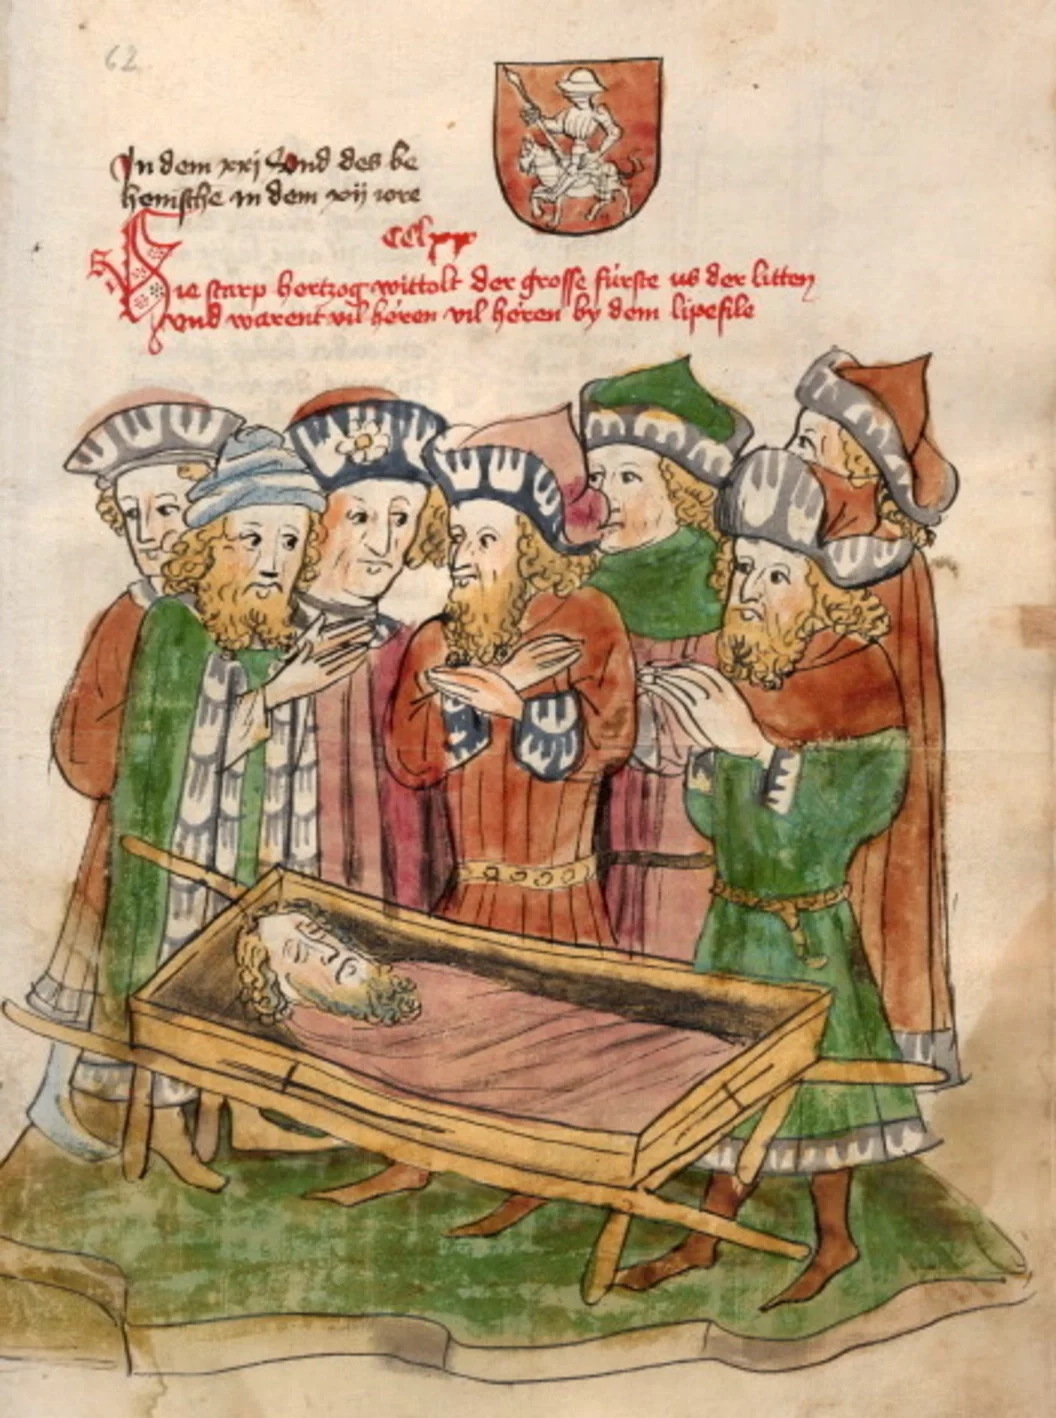 62
In dem xxj Iond des be
hemsche in dem xij iore
CClxx
Hie starp hertzog wittolt der grosse fürste us der litten
vnd warent vil heren vil heren by dem lipefile